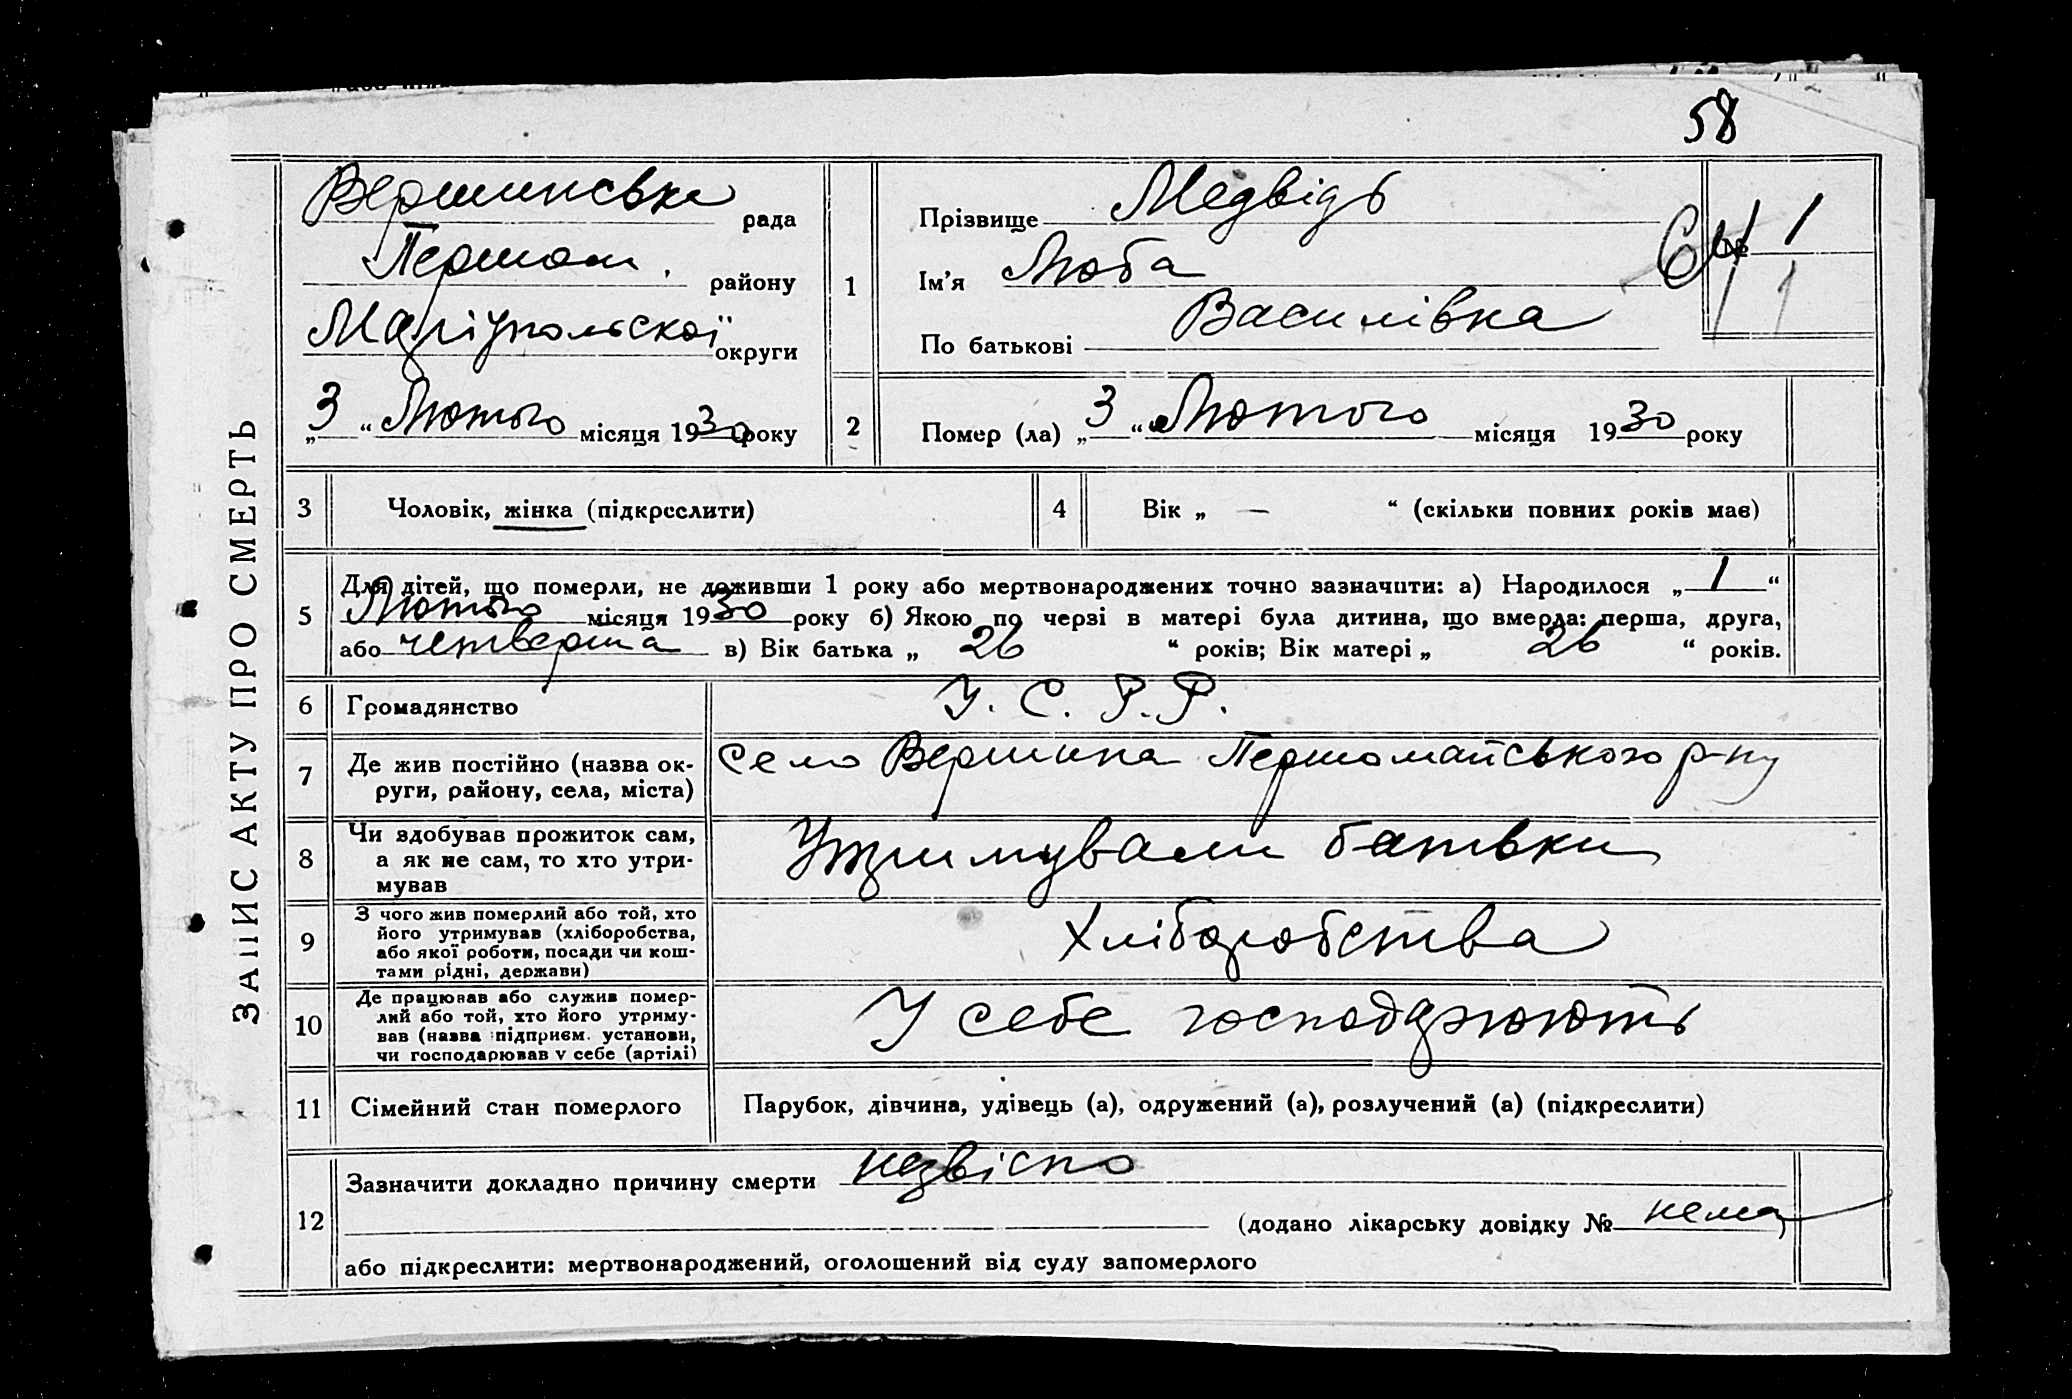 58
ЗАПИС АКТУ ПРО СМЕРТЬ
Вершинська рада
Першом. району
Маріупольскої округи
„3“ Лютого місяця 1930 року
1
Прізвище Медвідь
Ім'я Люба
По батькові Василівка
№ 1
1
2
Помер (ла) „3“ Лютого місяця 1930 року
3 Чоловік, жінка (підкреслити)
4 Вік „ — “ (скільки повних років має)
5
Для дітей, що померли, не доживши 1 року або мертвонароджених точно зазначити: а) Народилося „1“
Лютого місяця 1930 року б) Якою по черзі в матері була дитина, що вмерла: перша, друга,
або четверта в) Вік батька „ 26 “ років; Вік матері „ 26 “ років.
6 Громадянство У. С. Р. Р.
7 Де жив постійно (назва ок-
руги, району, села, міста)
село Вершина Першомайського р-ну
8 Чи здобував прожиток сам,
а як не сам, то хто утри-
мував
Утримували батьки
9 З чого жив померлий або той, хто
його утримував (хліборобства,
або якої роботи, посади чи кош-
тами рідні, держави)
Хліборобства
10 Де працював або служив помер-
лий або той, хто його утриму-
вав (назва підприєм. установи,
чи господарював у себе (артілі)
У себе господарюють
11 Сімейний стан померлого Парубок, дівчина, удівець (а), одружений (а), розлучений (а) (підкреслити)
12 Зазначити докладно причину смерти незвісно
(додано лікарську довідку № нема)
або підкреслити: мертвонароджений, оголошений від суду запомерлого